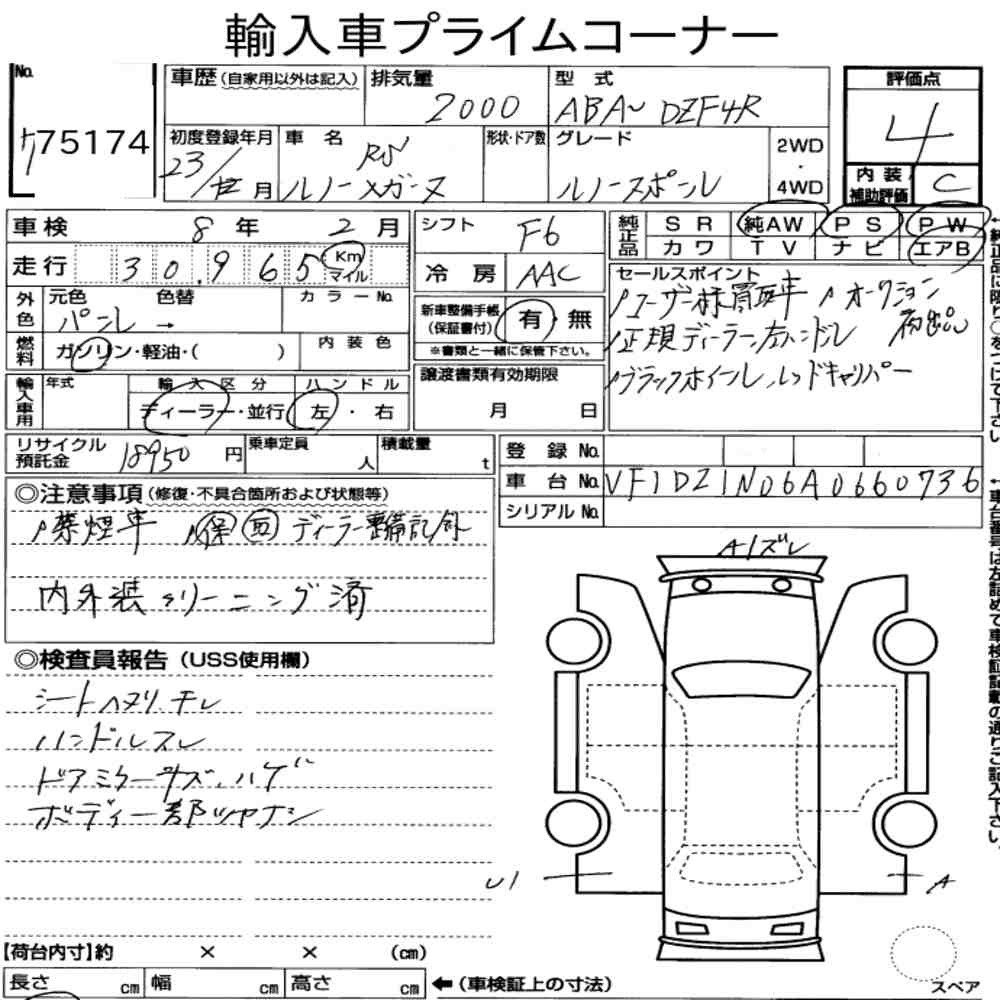 輸入車プライムコーナー
No. 75174
車歴(自家用以外は記入)
排気量 2000
型式 ABA~ DZF4R
評価点 4
初度登録年月 23/12月
車名 RN ルノーメガーヌ
形状・ドア数
グレード ルノースポール
2WD ・ 4WD
内装補助評価 C
車検 8年 2月
シフト F6
純正品 SR 純AW PS PW
カワ TV ナビ エアB
走行 30,965 Km マイル
冷房 AAC
セールスポイント
ユーザー様買取車 オークション初出品
正規ディーラー左ハンドル
ブラックホイール レッドキャリパー
外色 元色 色替 カラーNo.
パール →
新車整備手帳(保証書付) 有・無
※書類と一緒に保管下さい。
燃料 ガソリン・軽油・( )
内装色
輸入車用 年式 輸入区分 ハンドル
ディーラー・並行 左・右
譲渡書類有効期限
月 日
リサイクル預託金 18950円
乗車定員 人
積載量 t
登録No.
車台No. VF1DZ1N06A0660736
シリアルNo.
◎注意事項(修復・不具合箇所および状態等)
禁煙車 保 ディーラー整備記外
内外装クリーニング済
A1ズレ
◎検査員報告(USS使用欄)
シートヘタリ、キレ
ハンドルスレ
ドアミラーキズ、ハゲ
ボディ一部ツヤナシ
U1
A
スペア
【荷台内寸】約 × × (cm)
長さ cm 幅 cm 高さ cm ←(車検証上の寸法)